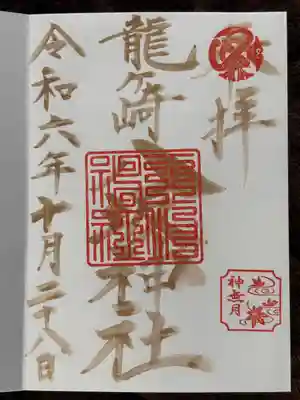 奉拝
龍ヶ崎八坂神社
令和六年十月二十八日
神無月